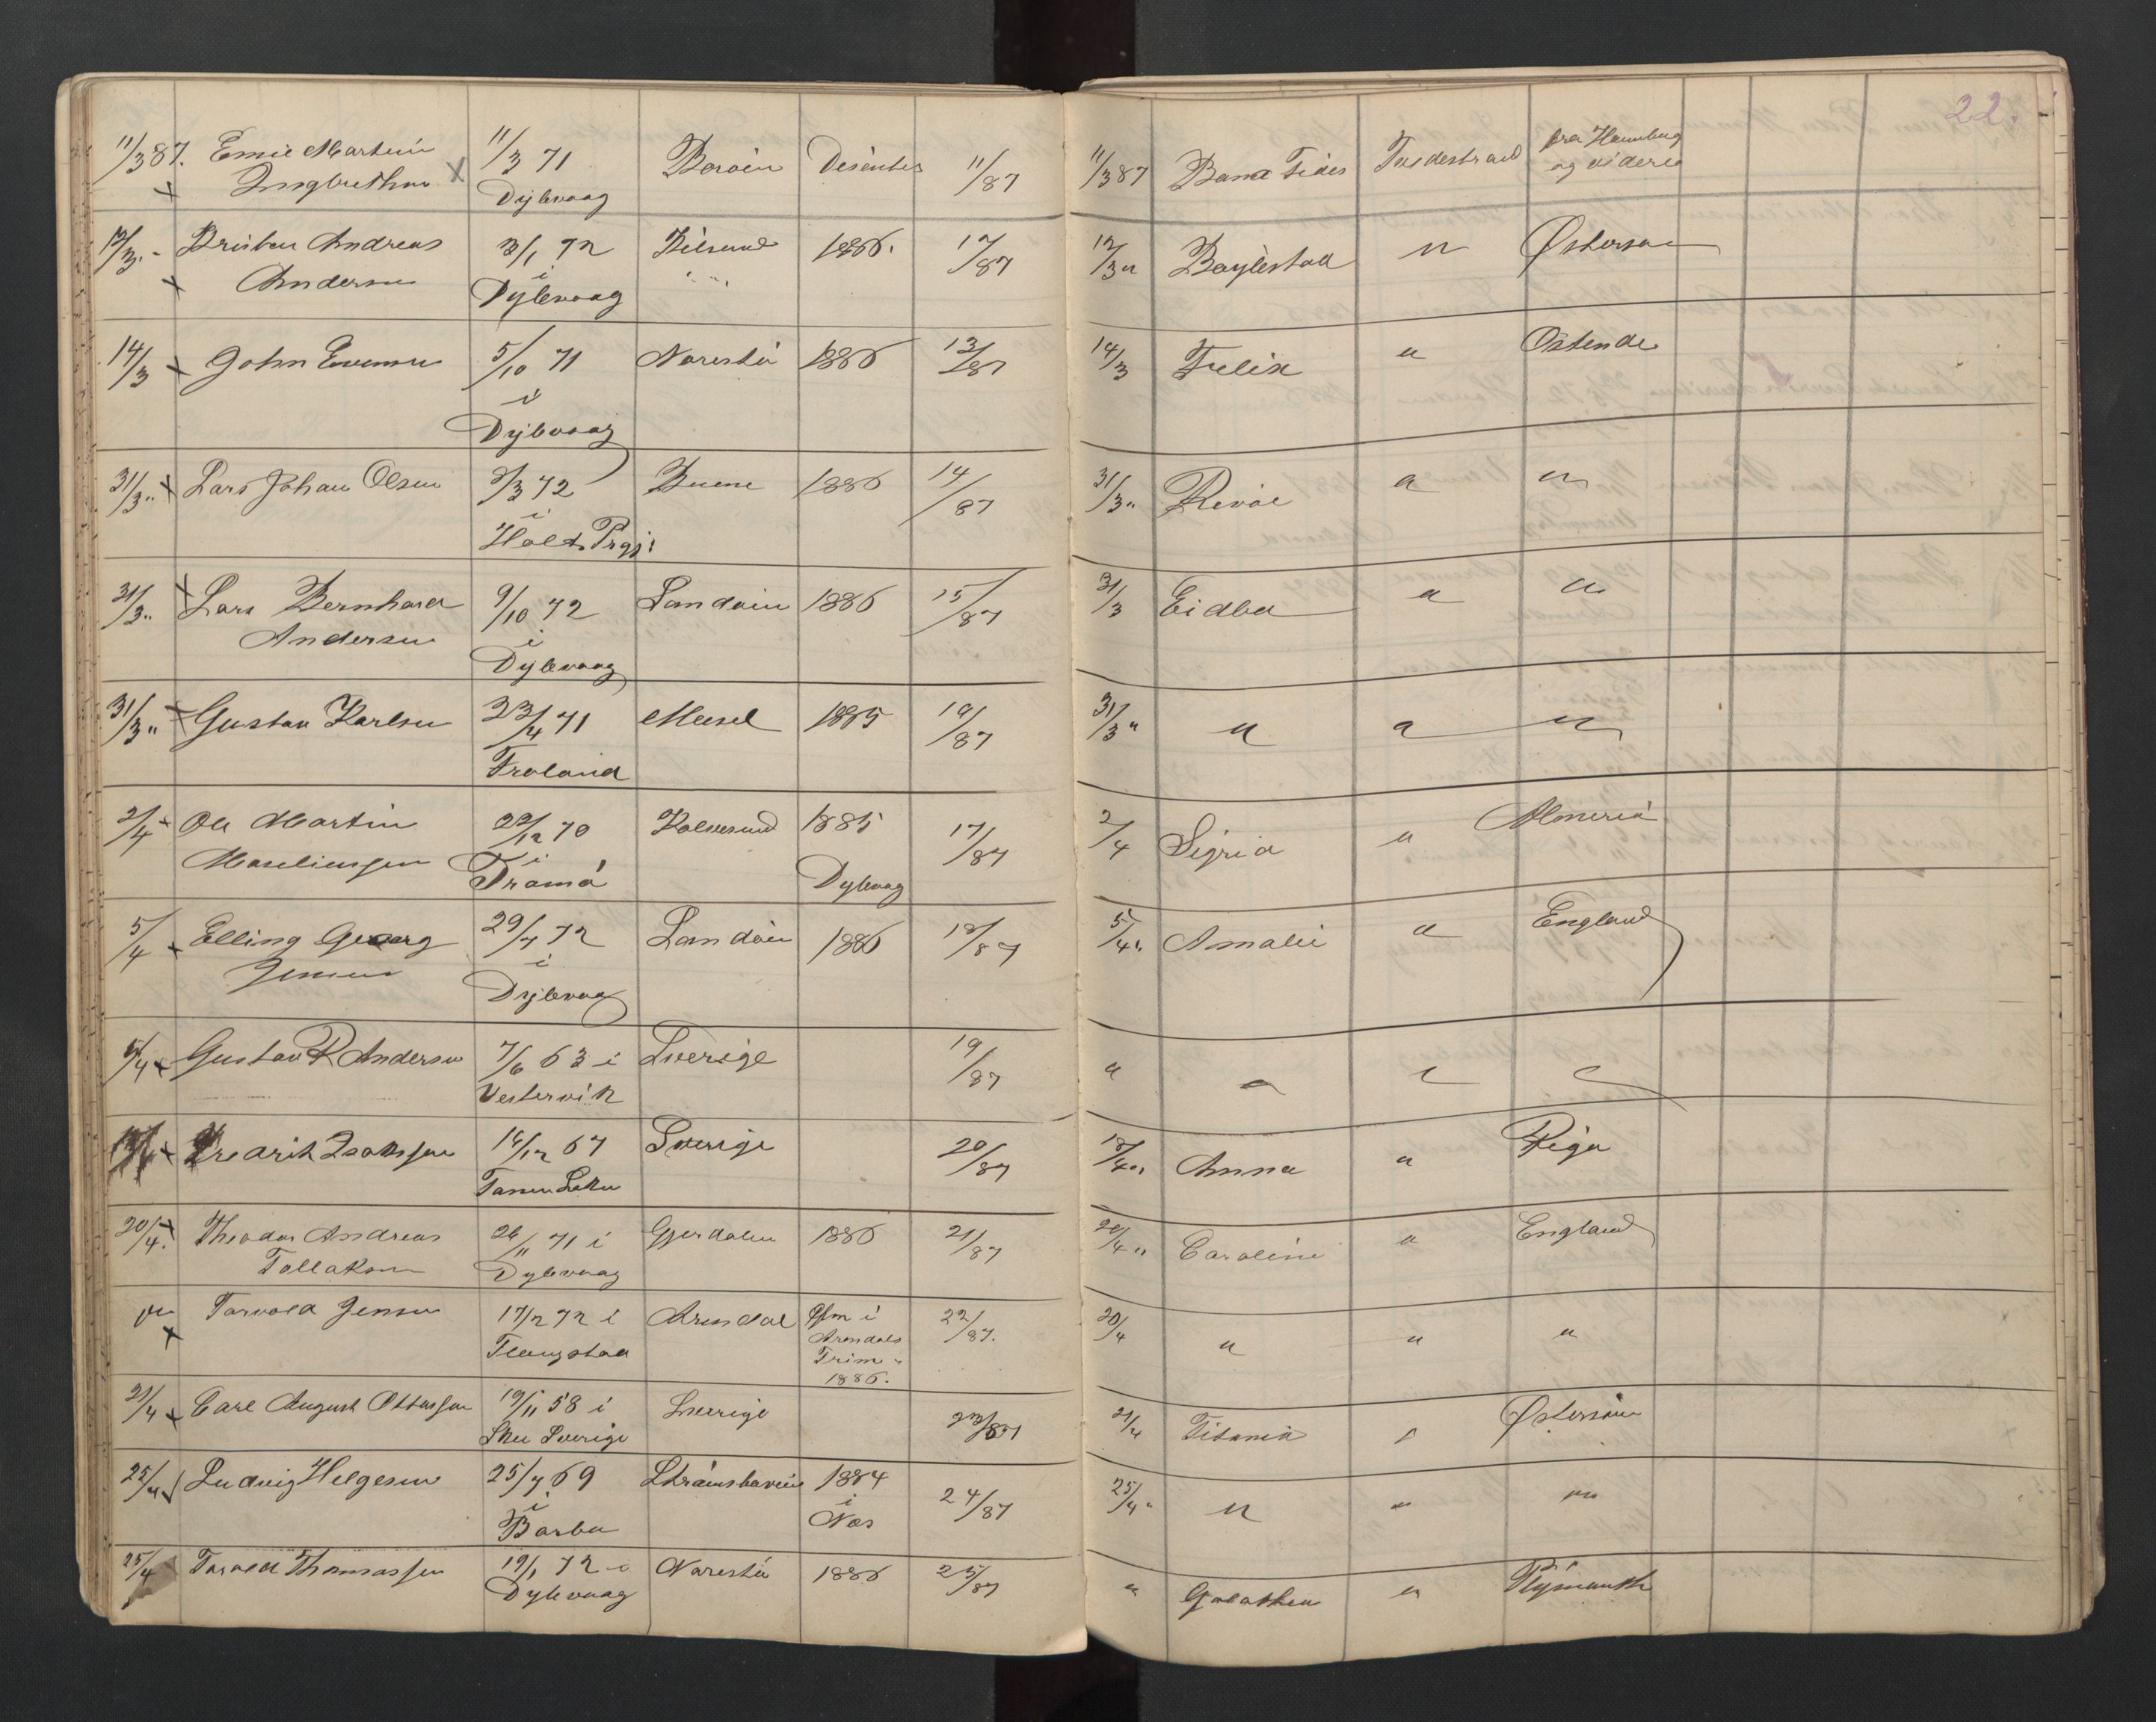 22.
11/3 87. Emil Martin 11/3 71 Borøen 11/87 11/3 87 Bona Fides Tvedestrand fra Hamburg
Ingbrethsen Dybvaag og videre
12/3 - Kristen Andreas 3/1 72 Kilsund 1886. 12/87 12/3 " Bøylestad " Østersøen
Andersen i
Dybvaag
14/3 John Evensen 5/10 71 Narestø 1886 13/87 14/3 Felix " Ostende
i
Dybvaag
31/3 " Lars Johan Olsen 3/3 72 1886 14/87 31/3 " " "
i
Holts Prgj:
31/3 " Lars Bernhard 9/10 72 Sandøen 1886 15/87 31/3 Eidba " "
Andersen i
Dybvaag
31/3 " Gustav Karlsen 23/4 71 1885 31/3 " " " "
Froland
2/4 Ole Martin 22/12 70 Kalvesund 1885 17/87 2/4 Sigrid " Almeria
i
Tromø Dybvaag
5/4 Elling Georg 29/7 72 Sandøen 1886 18/87 5/4 " Amalie " England
Jensen i
Dybvaag
5/4 Gustav R Andersen 7/6 63 i Sverige 19/87 " " " "
Vestervik
Fredrik Isaksson 16/12 67 Sverige 20/87 18/4 " Anna " Riga
20/4. Theodor Andreas 26/11 71 i Gjerdalen 1886 21/87 20/4 " Caroline " England
Tallaksen Dybvaag
" Torvald Jensen 17/2 72 i Arendal i 22/87. 20/4 " " "
Flangstad Arendals
Trim.
1886.
21/4 Carl August Ottersson 19/11 58 i Sverige 23/87 21/4 Titania " Østersøen
Sverige
25/4 Ludvig Helgesen 25/7 69 1884 24/87 25/4 " " " "
i i
Barbu Næs
25/4 Torvald Thomassen 19/1 72 i Narestø 1886 25/87 " Galathea " Plymouth
Dybvaag